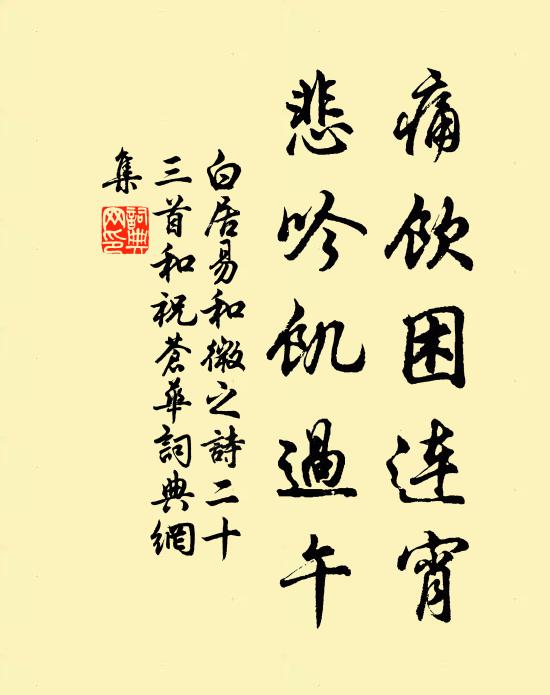 痛飲困連宵
悲吟飢過午
白居易和微之詩二十
三首和祝蒼華詞典網
集
詞典
网印